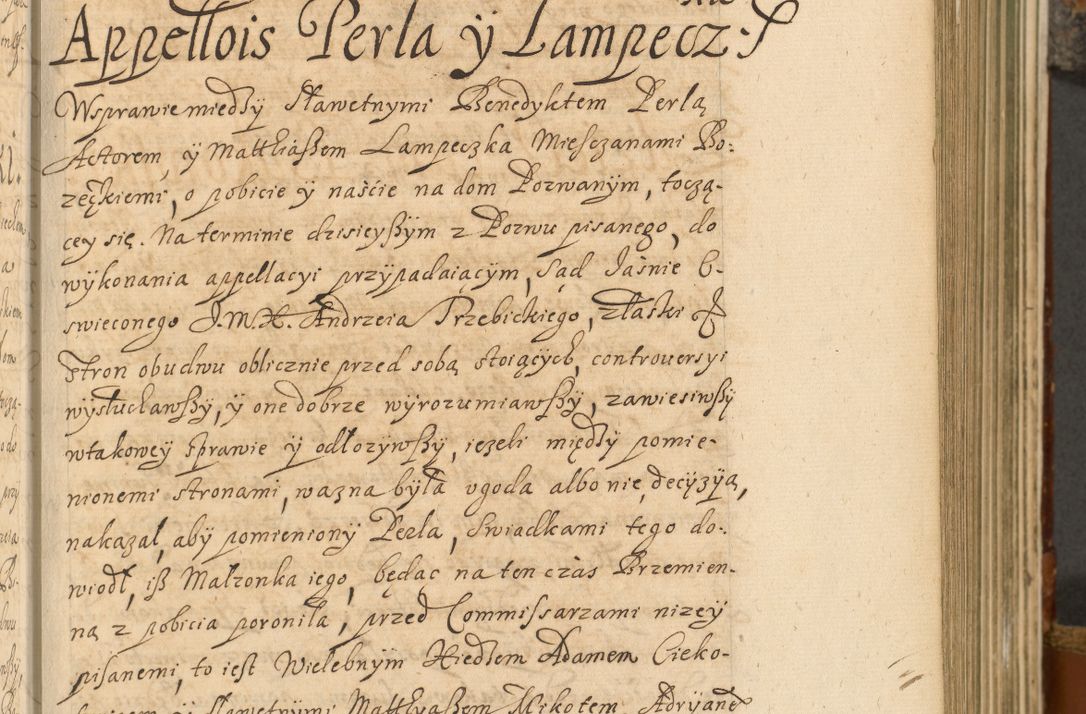 Appellois Perla ÿ Lampecz:
Wsprawie miedzÿ Sławetnymi Benedyktem Perlą
Actorem, ÿ Matthiaßem Lampeczka Miesczanami Bo:
zęckiemi, o pobicie ÿ naście na dom Pozwanÿm, toczą-
cey się. Na terminie dzisieyßÿm z Pozwu pisanego, do
wÿkonania appellacyi przÿpadaiącÿm, Sąd Jaśnie O-
swieconego J.M.X. Andrzeia Trzebickiego, złaski
Stron obudwu oblicznie przed sobą stoiącÿch, controversyi
wÿsłuchawßÿ, ÿ one dobrze wÿrozumiawßÿ, zawiesiwßÿ
wtakoweÿ sprawie ÿ odłozÿwßÿ, iezeli międzÿ pomie-
nionemi stronami, wazna bÿła ugoda albo nie, decÿzÿą,
nakazał, abÿ pomienionÿ Perla, Swiadkami tego do-
wiodł, iß Małzonka iego, będąc na ten czas Brzemien-
ną z pobicia poroniła, przed Commissarzami nizeÿ
pisanemi, to iest Wielebnÿm Xiedzem Adamem Cieko-
ÿ Sławetnÿmi Matthÿaßem Mikotem Adrÿane